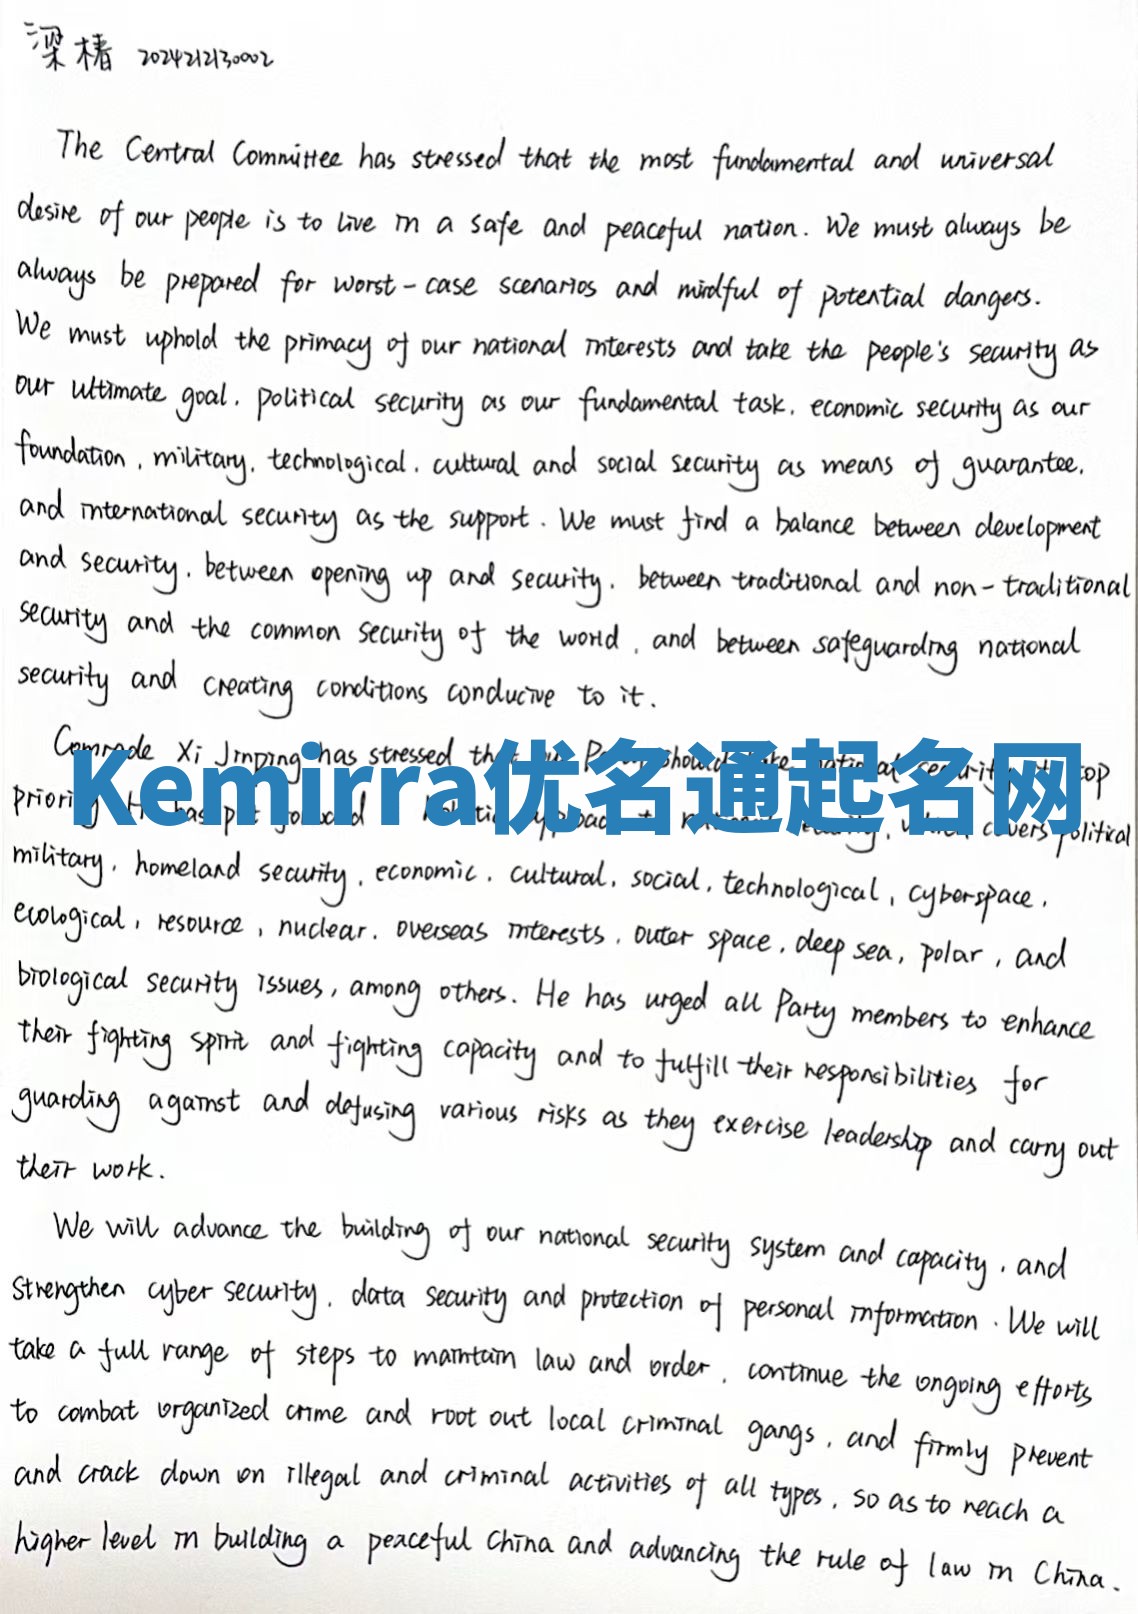 梁椿 2024212130002
The Central Committee has stressed that the most fundamental and universal
desire of our people is to live in a safe and peaceful nation. We must always be
always be prepared for worst-case scenarios and mindful of potential dangers.
We must uphold the primacy of our national interests and take the people's security as
our ultimate goal, political security as our fundamental task, economic security as our
foundation, military, technological, cultural and social security as means of guarantee,
and international security as the support. We must find a balance between development
and security, between opening up and security, between traditional and non-traditional
security and the common security of the world, and between safeguarding national
security and creating conditions conducive to it.
Comrade Xi Jinping has stressed security top
Kemirra优名通起名网
covers political
military, homeland security, economic, cultural, social, technological, cyberspace,
ecological, resource, nuclear, overseas interests, outer space, deep sea, polar, and
biological security issues, among others. He has urged all Party members to enhance
their fighting spirit and fighting capacity and to fulfill their responsibilities for
guarding against and defusing various risks as they exercise leadership and carry out
their work.
We will advance the building of our national security system and capacity, and
strengthen cyber security, data security and protection of personal information. We will
take a full range of steps to maintain law and order, continue the ongoing efforts
to combat organized crime and root out local criminal gangs, and firmly prevent
and crack down on illegal and criminal activities of all types, so as to reach a
higher level in building a peaceful China and advancing the rule of law in China.